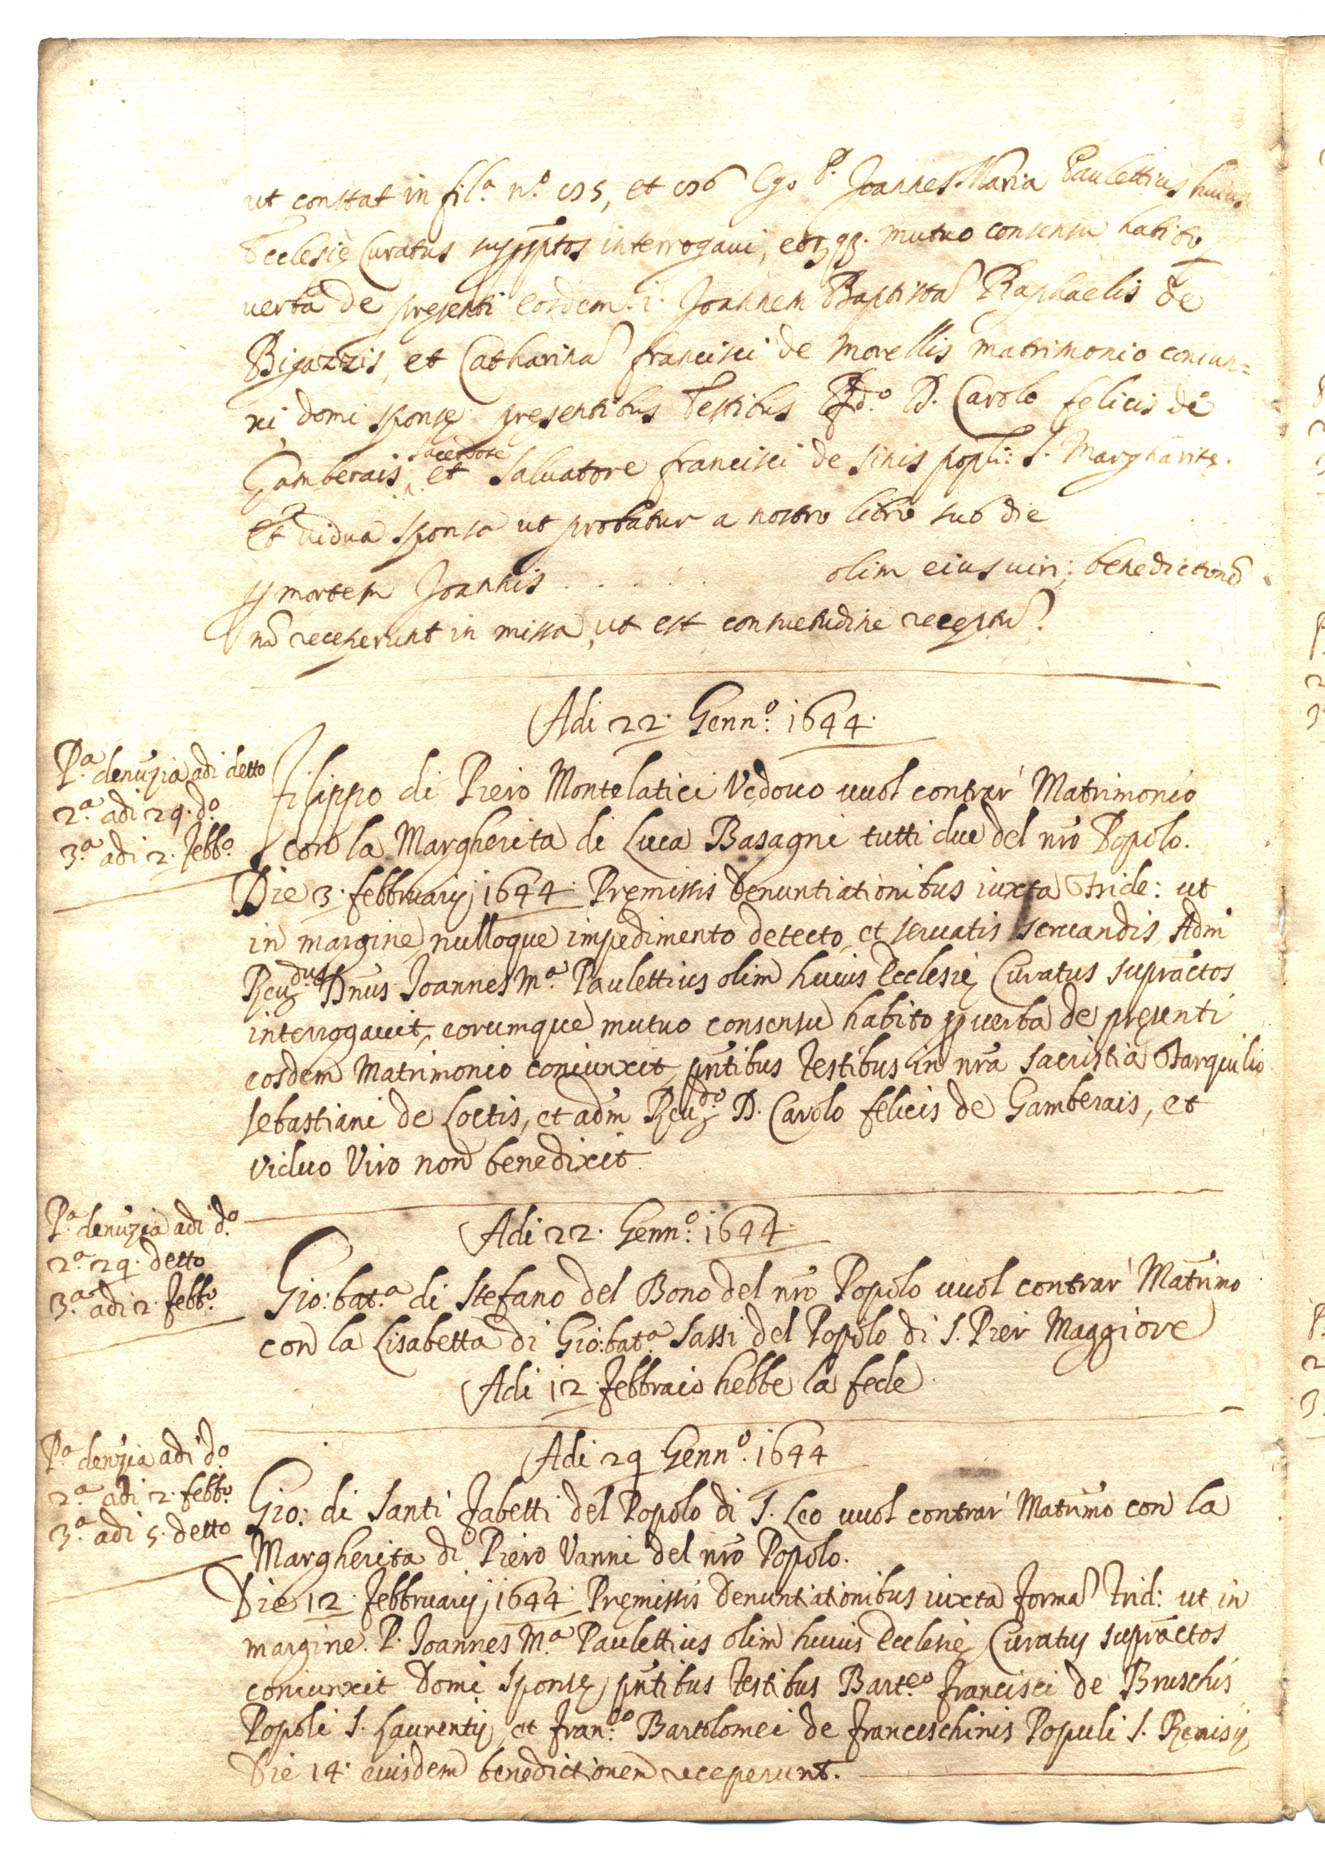 ut constat in fil.ª n.º 195, et 196 Ego P. Joannes Maria Paulettius huius
Ecclesię Curatus supp̃ptos interrogaui, eorq̃. mutuo consensu habito,
uerba de presenti eosdem .i. Joannem Baptistã Raphaelis de
Bigazzis, et Catharinã francisci de Morellis matrimonio coniun=
xi domi sponsę presentibus testibus Rdº D. Carolo felicis de
Gamberais, sacerdote et Saluatore francisci de sinis popli: S. Margharitę.
Et uidua sponsa ut probatur a nostro libro sub die
p mortem Joannis . . . . . olim eius uiri; benedictionẽ
nõ receperunt in missa, ut est consuetudine receptũ.
Adi 22. Genn.º 1644.
P.ª denũzia adi detto
2.ª adi 29. d.º
3.ª adi 2. Febb.º
Filippo di Piero Montelatici Vedouo uuol contrar' Matrimonio
con la Margherita di Luca Basagni tutti due del nr̃o Popolo.
Die 3. febbruarij 1644. Pręmissis Denuntiationibus iuxta Tride: ut
in margine, nulloque impedimento detecto, et seruatis seruandis Adm̃
Reu.dus Dn̄us Joannes M.ª Paulettius olim huius Ecclesię Curatus supra.ctos
interrogauit, eorumque mutuo consensu habito p uerba de pręsenti
eosdem Matrimonio coniunxit, pñtibus testibus in nr̃a sacristia Tarquilio
sebastiani de Loctis, et adm̃ Reu.do D. Carolo felicis de Gamberais, et
viduo Viro non benedixit.
Adi 22. Genn.º 1644.
P.ª denũzia adi d.º
2.ª 29. detto
3.ª adi 2. Febb.º
Gio: bat.ª di Stefano del Bono del nr̃o Popolo uuol contrar' Matrim̃o
con la Lisabetta di Gio: bat.ª Sassi del Popolo di S. Pier Maggiore
Adi 12. Febbraio hebbe la fede
Adi 29 Genn.º 1644
P.ª denũzia adi d.º
2.ª adi 2. febb.º
3.ª adi 5. detto
Gio: di Santi Fabetti del Popolo di S. Leo uuol contrar' Matrim̃o con la
Margherita di Piero Vanni del nr̃o Popolo.
Die 12. Febbruarij 1644. Pręmissis Denuntiationibus iuxta formã Trid: ut in
margine. P. Joannes M.ª Paulettius olim huius Ecclesię Curatus supra.ctos
coniunxit Domi sponsę, pñtibus testibus Bart.eo Francisci de Bruschis
Popoli S. Laurentij, et Fran.co Bartolomei de franceschinis Populi S. Remisij
Die 14. eiusdem benedictionem receperunt.